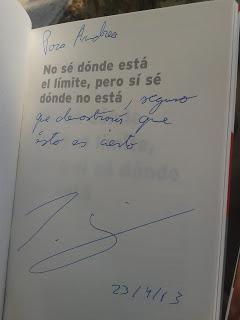 Para Andrea
No sé dónde está
el límite, pero sí sé
dónde no está, seguro
que demostrarás que
ésto es cierto
23/4/13